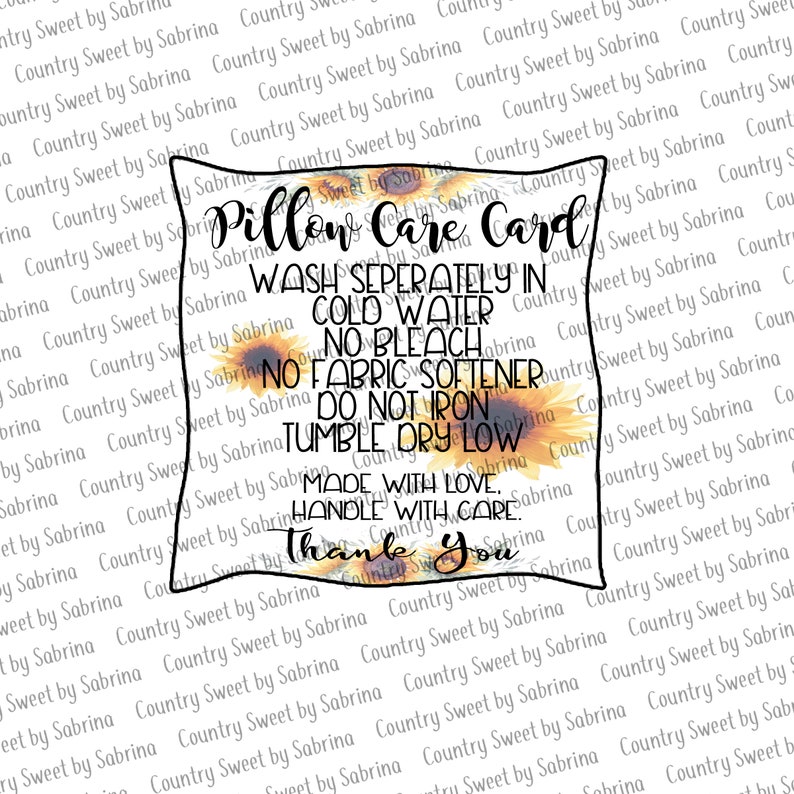 Pillow Care Card
WASH SEPERATELY IN
COLD WATER
NO BLEACH
NO FABRIC SOFTENER
DO NOT IRON
TUMBLE DRY LOW
MADE WITH LOVE,
HANDLE WITH CARE.
Thank You
Country Sweet by Sabrina